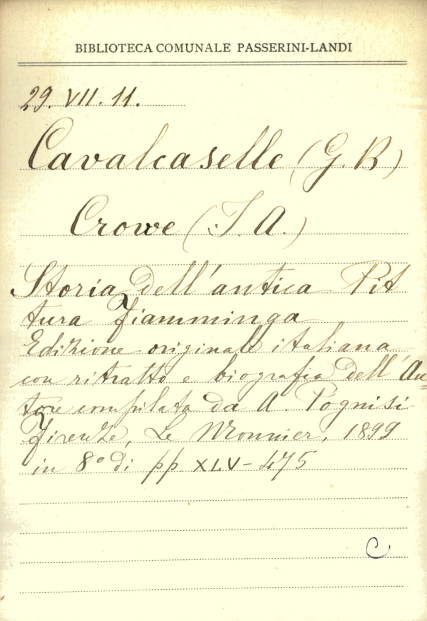 BIBLIOTECA COMUNALE PASSERINI-LANDI
29. VII. 11.
Cavalcaselle (G. B)
Crowe (J. A.)
Storia dell'antica Pit
tura fiamminga
Edizione originale italiana
con ritratto e biografia dell'Au=
tore compilata da A. Pognisi
Firenze, Le Monnier, 1899
in 8° di pp XLV-475
C.